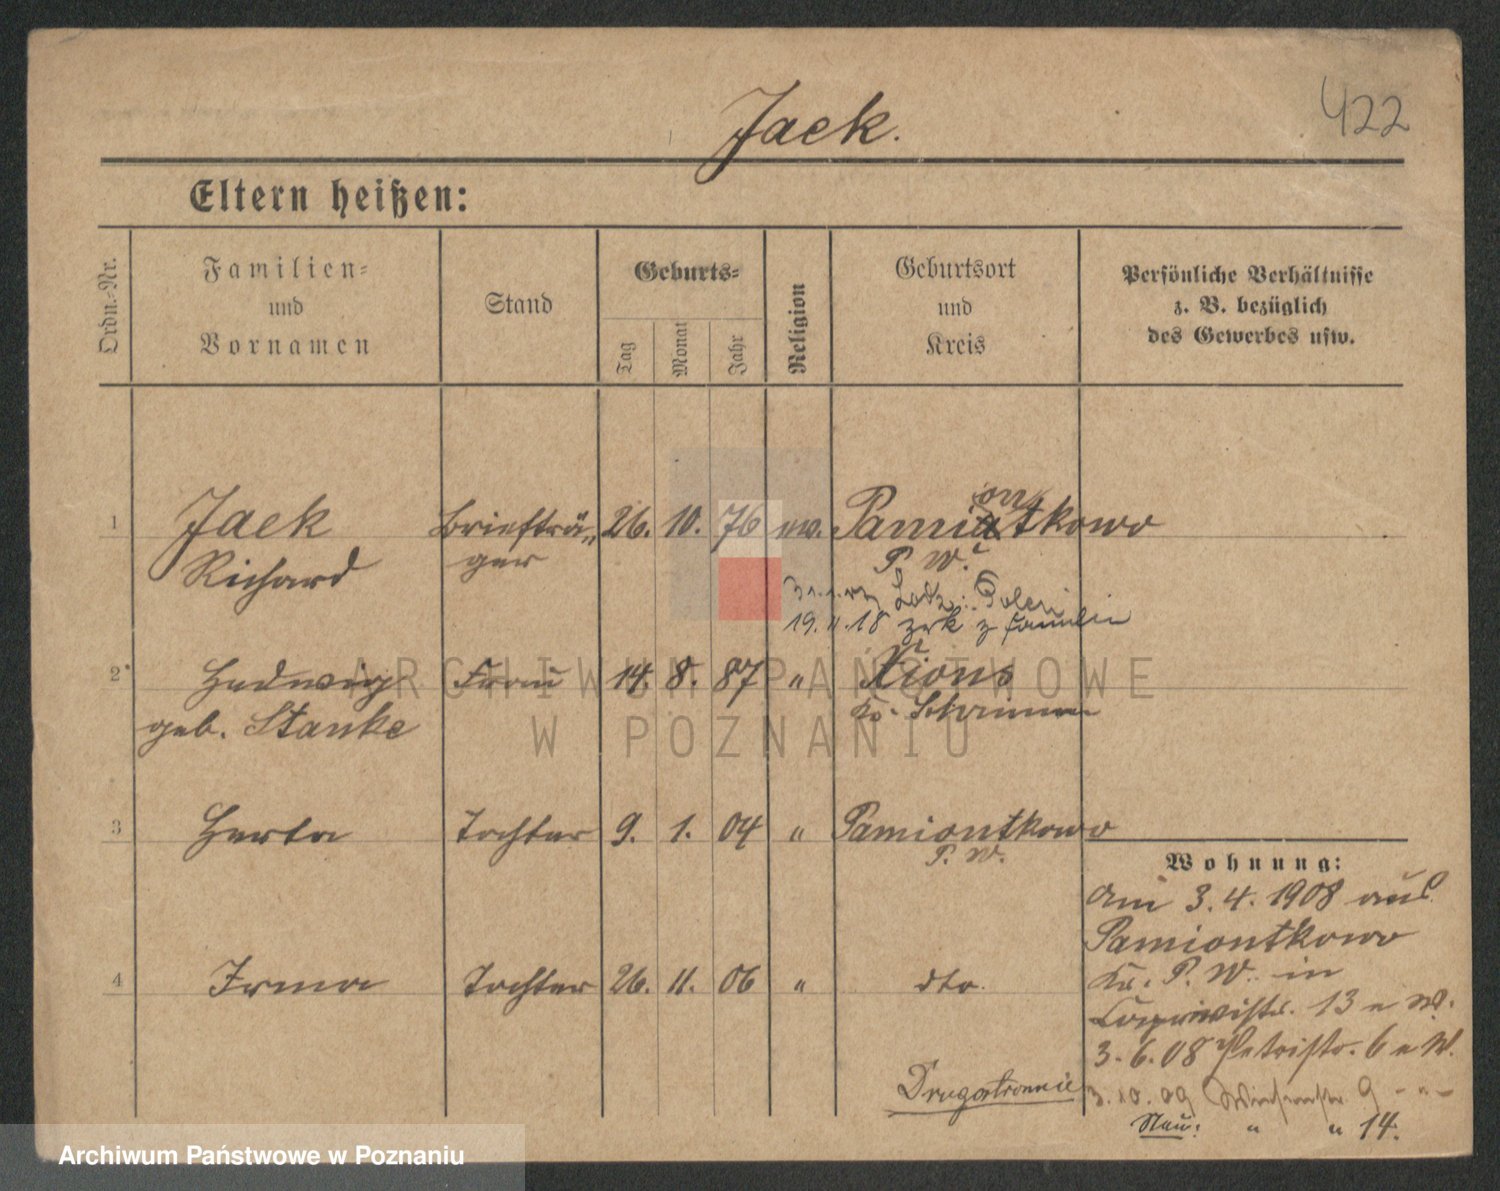 Jaek.
422
Eltern heißen:
Ordn.-Nr.
Familien-
und
Vornamen
Stand
Geburts-
Tag
Monat
Jahr
Religion
Geburtsort
und
Kreis
Persönliche Verhältnisse
z. B. bezüglich
des Gewerbes usw.
1
Jaek
Richard
Briefträ-
ger
26. 10. 76
ev.
Pamiontkowo
P. W.
Lodz: Polen
19.11.18 zrk z familien
2
Hedwig
geb. Stanke
Frau
14. 8. 87
"
Xions
Kr. Schrimm
3
Herta
Tochter
9. 1. 04
"
Pamiontkowo
P. W.
4
Irma
Tochter
26. 11. 06
"
dto.
Wohnung:
Am 3.4.1908 aus
Pamiontkowo
Kr. P. W. in
13 e W.
3.6.08 Petristr. 6 e W.
3.10.09 Wiesenstr. 9 - " -
Neu: " " 14.
Drugostronnie
ARCHIWUM PAŃSTWOWE
W POZNANIU
Archiwum Państwowe w Poznaniu